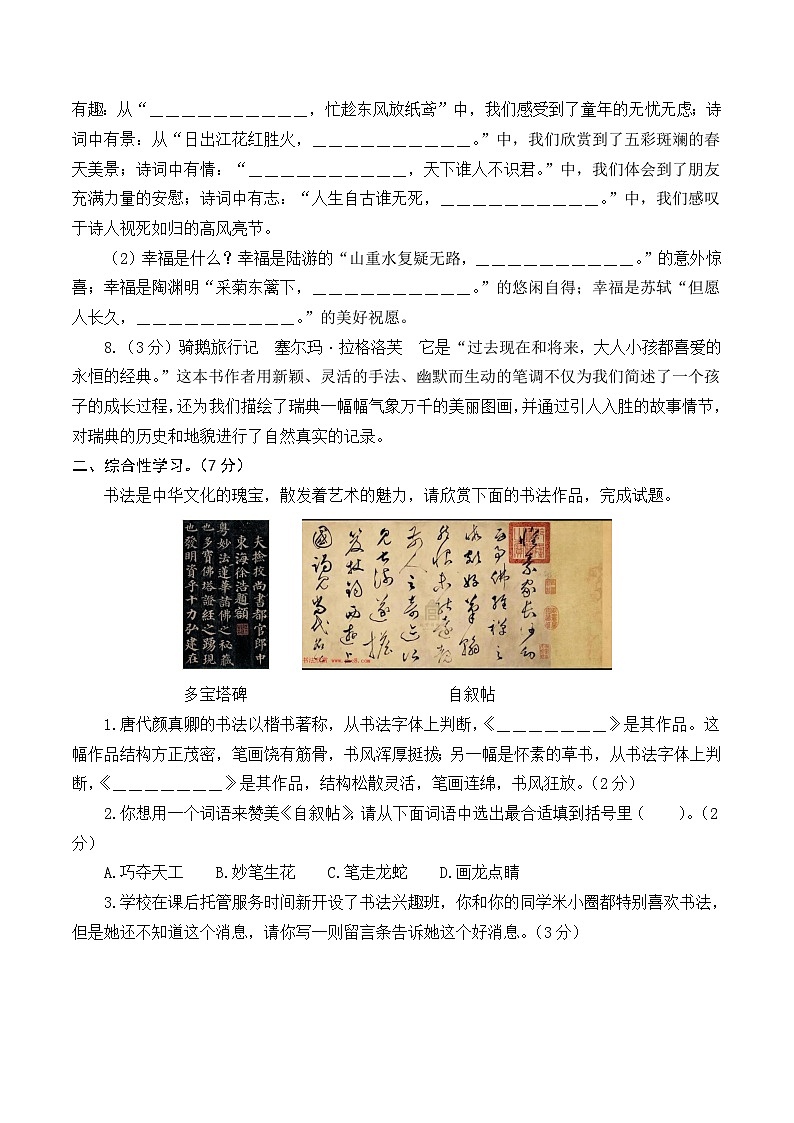 有趣：从“＿＿＿＿＿＿＿＿＿＿，忙趁东风放纸鸢”中，我们感受到了童年的无忧无虑；诗
词中有景：从“日出江花红胜火，＿＿＿＿＿＿＿＿＿＿。”中，我们欣赏到了五彩斑斓的春
天美景；诗词中有情：“＿＿＿＿＿＿＿＿＿＿，天下谁人不识君。”中，我们体会到了朋友
充满力量的安慰；诗词中有志：“人生自古谁无死，＿＿＿＿＿＿＿＿＿＿。”中，我们感叹
于诗人视死如归的高风亮节。
（2）幸福是什么？幸福是陆游的“山重水复疑无路，＿＿＿＿＿＿＿＿＿＿。”的意外惊
喜；幸福是陶渊明“采菊东篱下，＿＿＿＿＿＿＿＿＿＿。”的悠闲自得；幸福是苏轼“但愿
人长久，＿＿＿＿＿＿＿＿＿＿。”的美好祝愿。
8.（3分）骑鹅旅行记　塞尔玛·拉格洛芙　它是“过去现在和将来，大人小孩都喜爱的
永恒的经典。”这本书作者用新颖、灵活的手法、幽默而生动的笔调不仅为我们简述了一个孩
子的成长过程，还为我们描绘了瑞典一幅幅气象万千的美丽图画，并通过引人入胜的故事情节，
对瑞典的历史和地貌进行了自然真实的记录。
二、综合性学习。（7分）
书法是中华文化的瑰宝，散发着艺术的魅力，请欣赏下面的书法作品，完成试题。
夫检校尚書都官郎中
東海徐浩題額
粤妙法蓮華諸佛之秘藏
也多寶佛塔證經之踴現
也發明資乎十力弘建在
懷素家長沙幼
而事佛經禪之
暇頗好筆翰
然恨未能遠覩
前人之奇迹所
見甚淺遂擔
笈杖錫西遊上
國謁見當代名公
多宝塔碑　自叙帖
1.唐代颜真卿的书法以楷书著称，从书法字体上判断，《＿＿＿＿＿＿＿》是其作品。这
幅作品结构方正茂密，笔画饶有筋骨，书风浑厚挺拔；另一幅是怀素的草书，从书法字体上判
断，《＿＿＿＿＿＿＿》是其作品，结构松散灵活，笔画连绵，书风狂放。（2分）
2.你想用一个词语来赞美《自叙帖》，请从下面词语中选出最合适填到括号里（　　）。（2
分）
A.巧夺天工　B.妙笔生花　C.笔走龙蛇　D.画龙点睛
3.学校在课后托管服务时间新开设了书法兴趣班，你和你的同学米小圈都特别喜欢书法，
但是她还不知道这个消息，请你写一则留言条告诉她这个好消息。（3分）